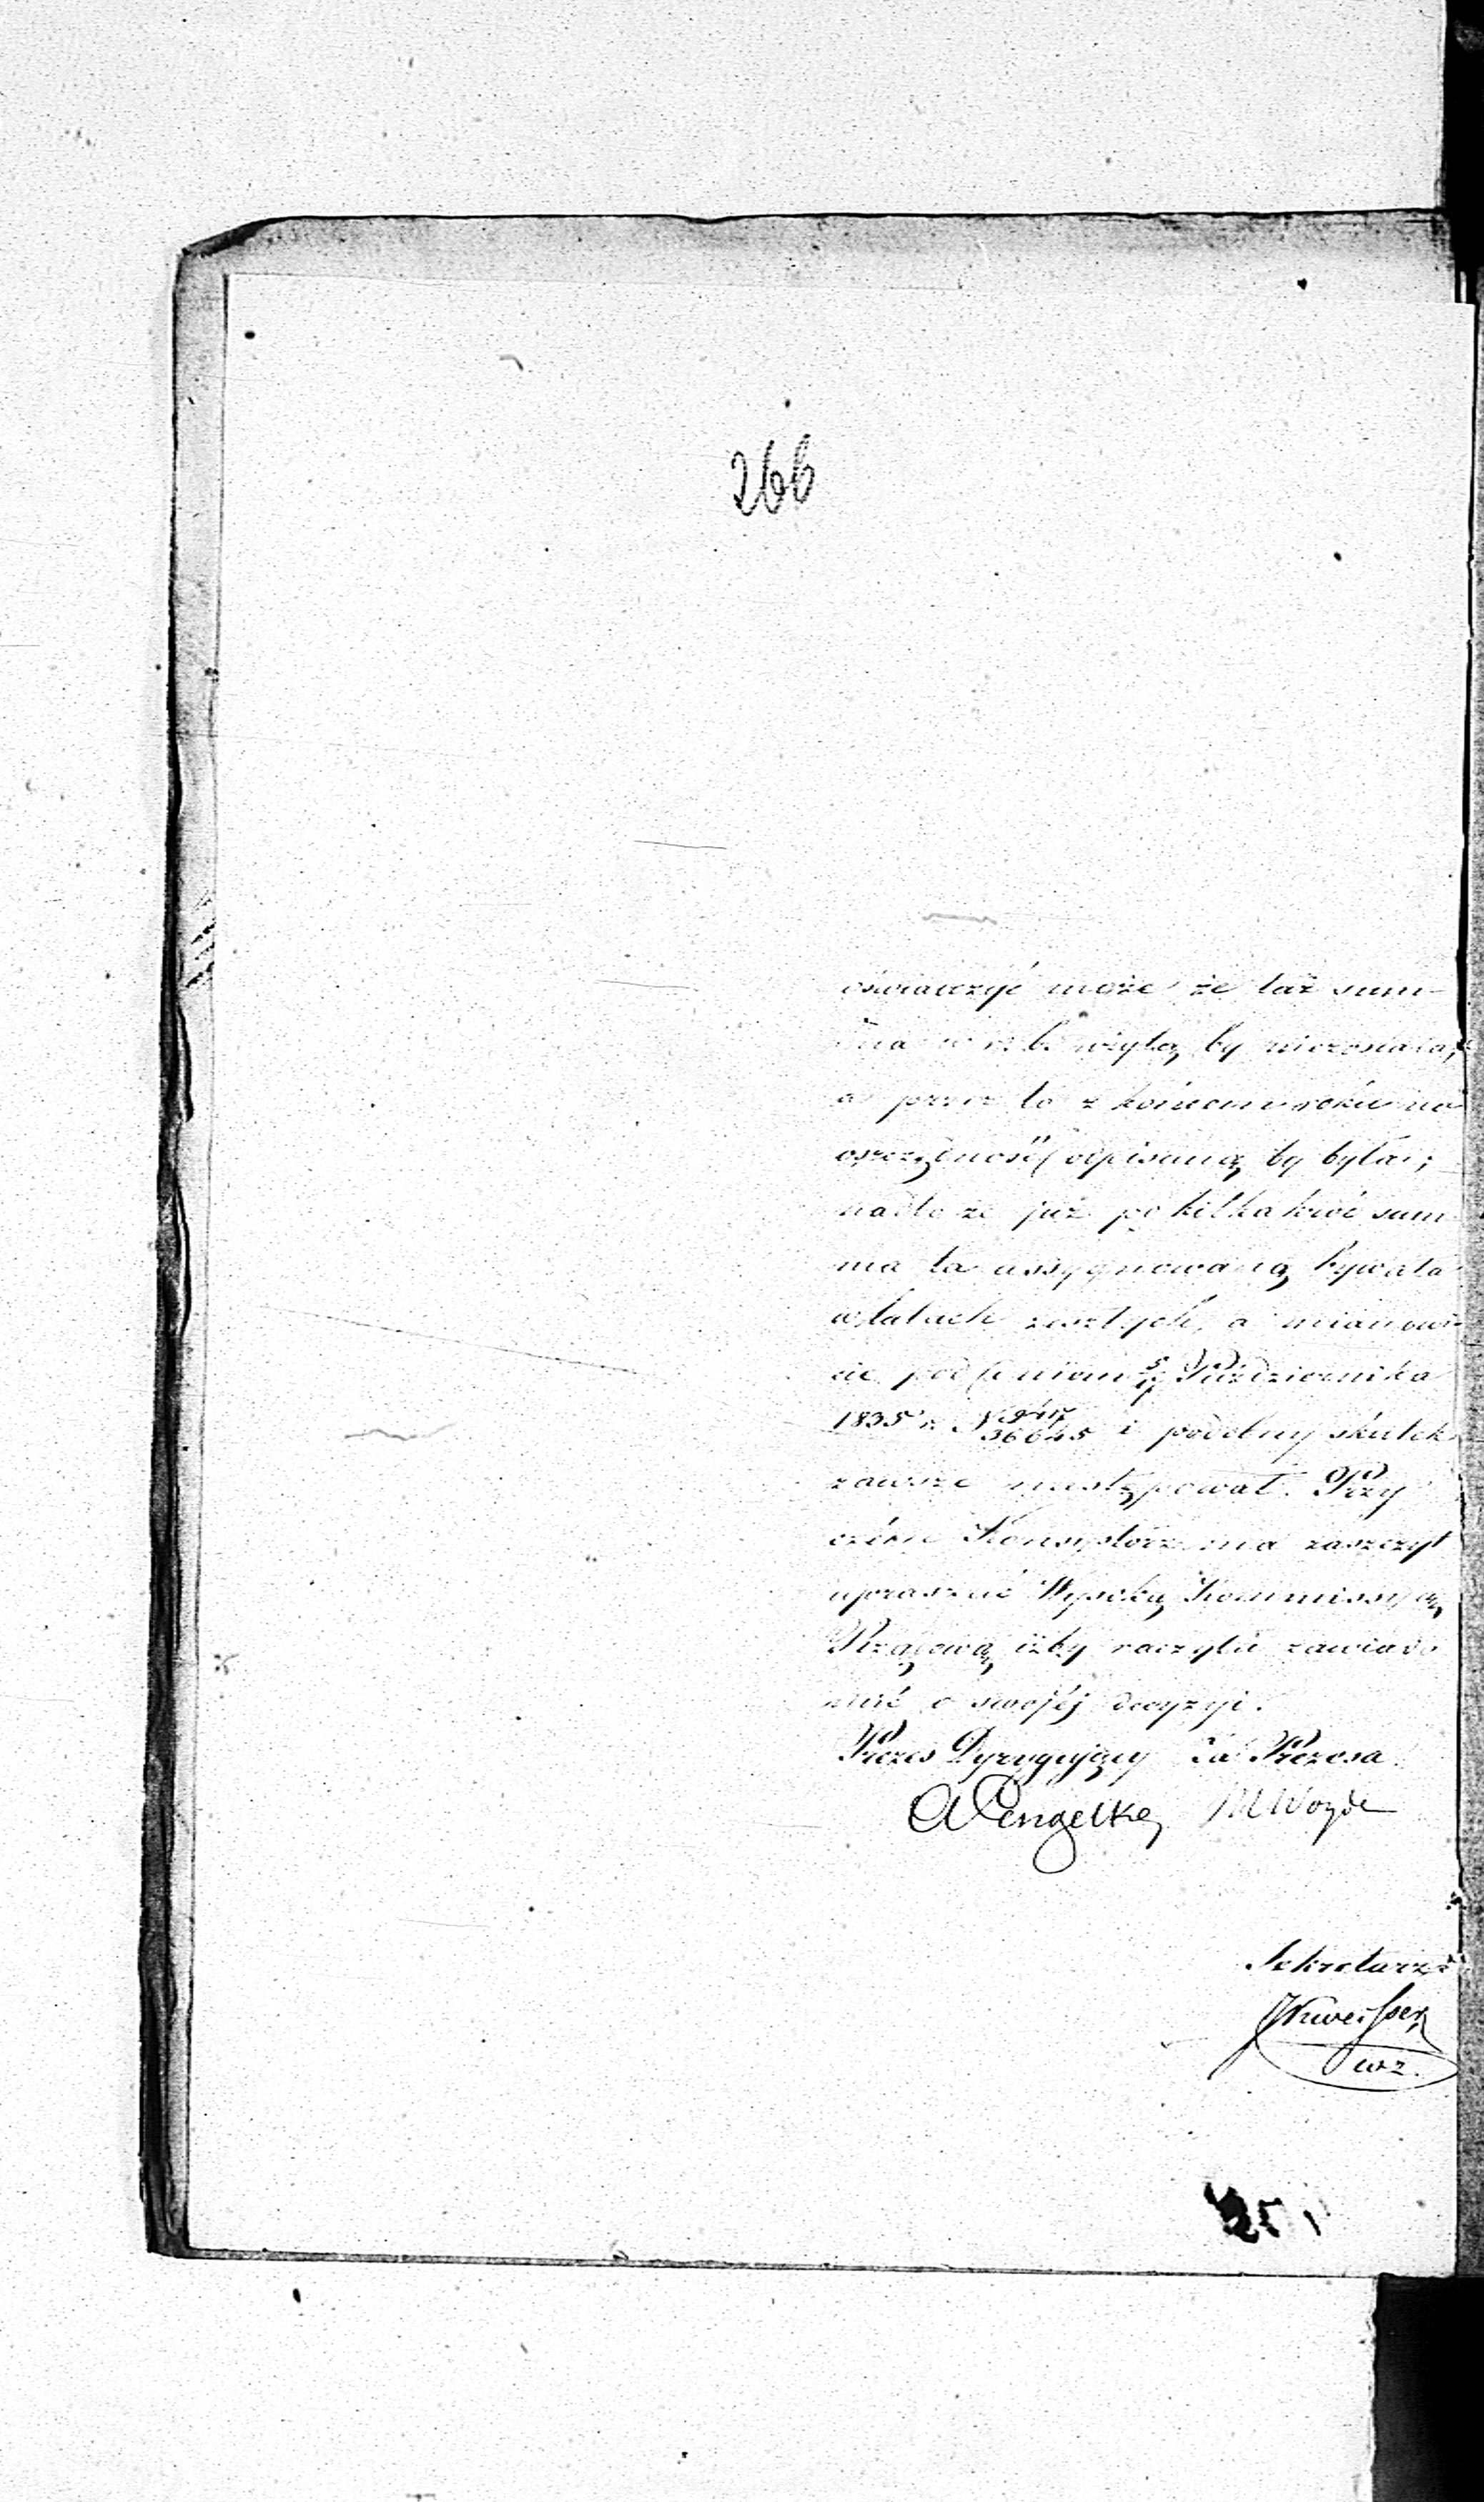 266
oświadczyć może że taż sum-
ma w r. b. użytą by niezostała,
a przez to z końcem roku na
oszczędność odpisaną by była;
nadto że już po kilkakroć sum
ma ta assygnowaną bywała
w latach zeszłych, a mianowi
cie pod dniem 5/17 Października
1835 r. N 36645 i podobny skutek
zawsze następował. Przy
czém Konsystorz ma zaszczyt
upraszać Wysoką Kommissyą
Rządową iżby raczyła zawiado
mić o swojéj decyzyi.
Prezes Dyrygujący Za Prezesa
Sekretarz
wz.